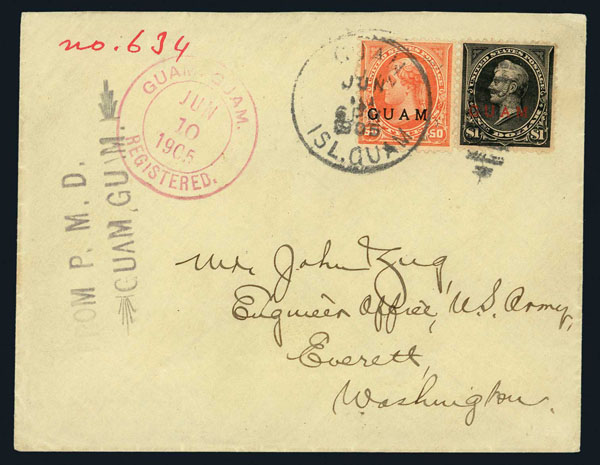 no. 634
GUAM, GUAM.
JUN
10
1905
REGISTERED.
JUN
1905
ISL. GUAM
UNITED STATES POSTAGE
GUAM
50
UNITED STATES POSTAGE
GUAM
$1 ONE DOLLAR $1
P. M. D.
GUAM, GUAM.
Mr. John Zug,
Engineer Office, U.S. Army,
Everett,
Washington.